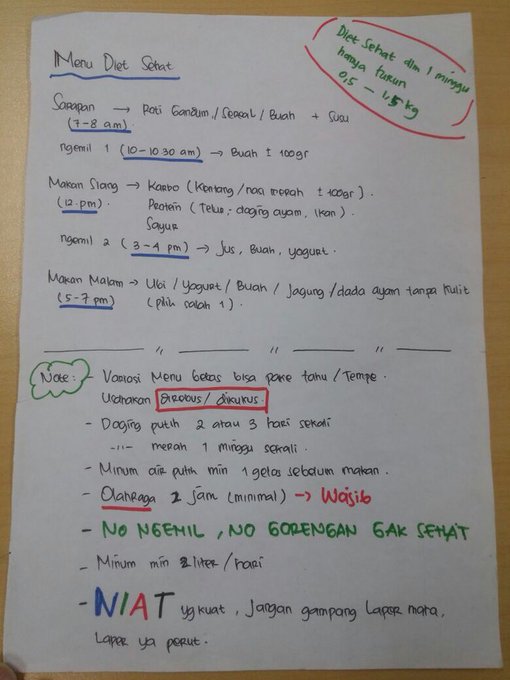 Menu Diet Sehat
Diet Sehat dlm 1 minggu
hanya turun
0,5 - 1,5 kg
Sarapan → Roti Gandum / Sereal / Buah + Susu
(7-8 am)
ngemil 1 (10-10.30 am) → Buah ± 100gr
Makan Siang → Karbo (Kentang / nasi merah ± 100gr).
(12.pm). Protein (Telur, daging ayam, Ikan).
Sayur
ngemil 2 (3-4 pm) → Jus, Buah, yogurt.
Makan Malam → Ubi / Yogurt / Buah / Jagung / dada ayam tanpa kulit
(5-7 pm) (pilih salah 1).
Note: - Variasi Menu bebas bisa pake tahu / Tempe.
Usahakan direbus / dikukus.
- Daging putih 2 atau 3 hari sekali
-"- merah 1 minggu sekali.
- Minum air putih min 1 gelas sebelum makan.
- Olahraga 2 jam (minimal) → Wajib
- NO NGEMIL, NO GORENGAN GAK SEHAT
- Minum min 2 liter / hari
- NIAT yg kuat, Jangan gampang Laper mata,
Laper ya perut.